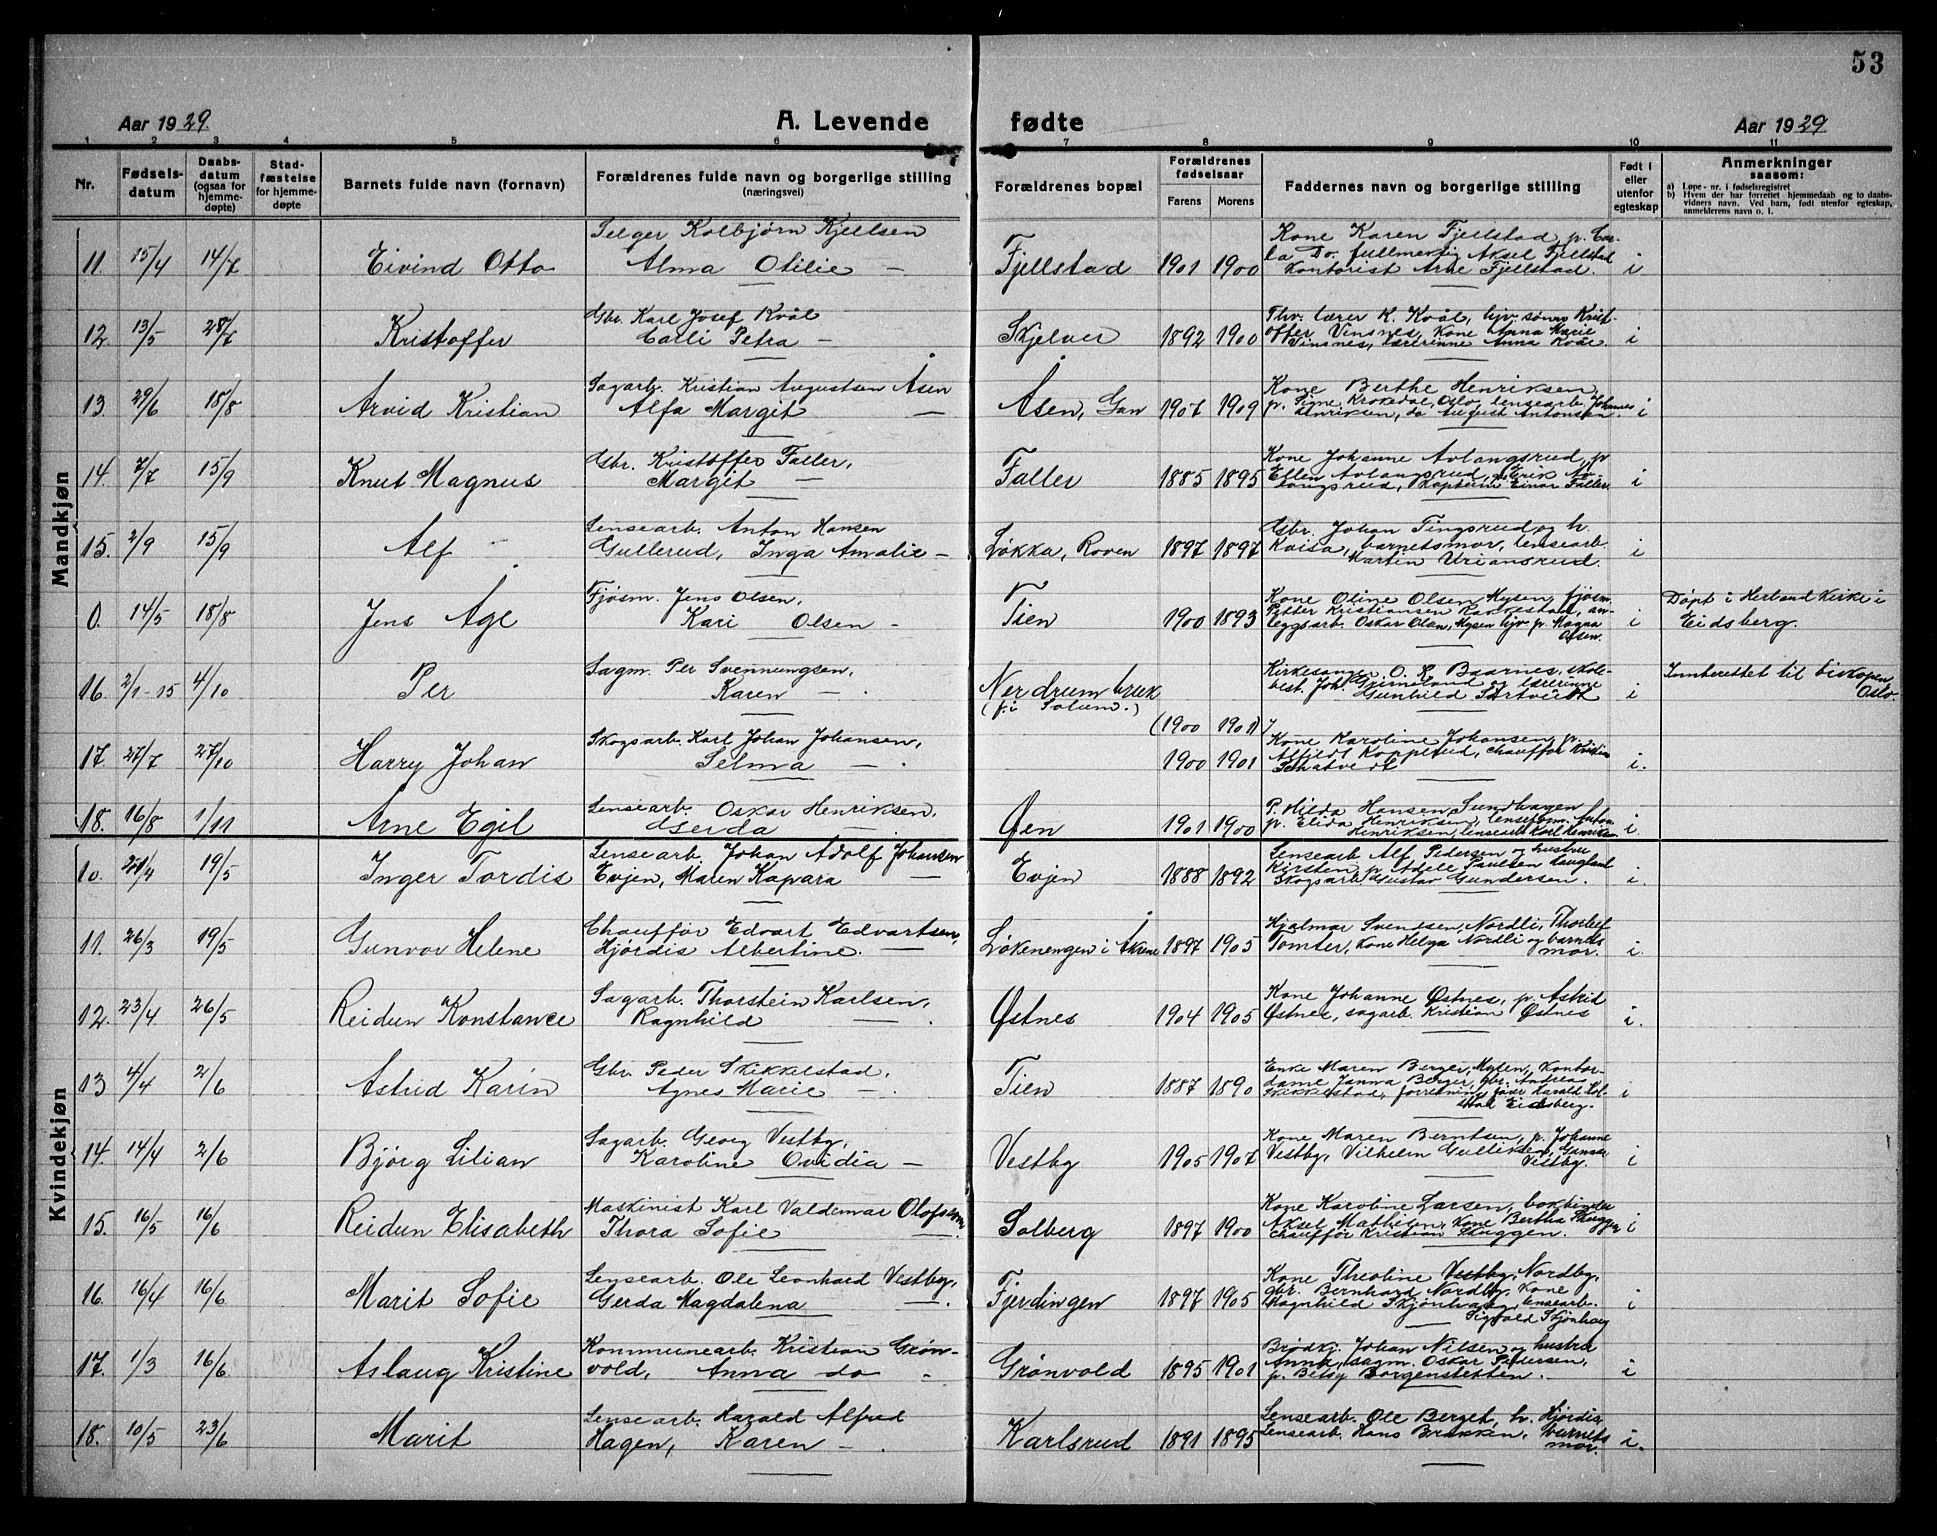 53
Aar 1929.
A. Levende fødte
Aar 1929
1 2 3 4 5 6 7 8 9 10 11
Nr.
Fødsels-datum
Daabs-datum (ogsaa for hjemme-døpte)
Stad-fæstelse for hjemme-døpte
Barnets fulde navn (fornavn)
Forældrenes fulde navn og borgerlige stilling (næringsvei)
Forældrenes bopæl
Forældrenes fødselsaar
Farens Morens
Faddernes navn og borgerlige stilling
Født i eller utenfor egteskap
Anmerkninger saasom:
a) Løpe-nr. i fødselsregistret
b) Hvem der har forrettet hjemmedaab og to daabs-vidners navn. Ved barn, født utenfor egteskap, anmelderens navn o. l.
Mandkjøn
11. 15/4 14/7 Eivind Otto
Selger Kolbjørn Kjellsen
Alma Otilie —
Fjellstad 1901 1900
Kone Karen Fjellstad p. Car-
la Do. fullmektig Aksel Fjellstad
Kontorist Arne Fjellstad. i
12. 13/5 28/7 Kristoffer
Gbr. Karl Josef Kvål
Carli Petra —
Skjelver 1892 1900
Thv. lærer K. Kvål, hjv. sønn Krist-
offer Vinsnes, Kone Anna Marie
Vinsnes, Lærerinne Anna Kvåle. i
13. 29/6 18/8 Arvid Kristian
Sagarb. Kristian Augustsen Åsen
Alfa Margit —
Åsen, Gan 1907 1909
Kone Berthe Henriksen,
p. Signe Krokedal, Oslo, lensearb. Johannes
Henriksen, do August Antonsen. i
14. 7/7 15/9 Knut Magnus
Gbr. Kristoffer Faller,
Margit —
Faller 1885 1895
Kone Johanne Avlangsrud, p
Ellen Avlangsrud, Erik Av-
langsrud, Kaptein Einar Faller. i
15. 2/9 15/9 Alf
Lensearb. Anton Hansen
Gullerud, Inga Amalie —
Løkka, Roven 1897 1897
Gbr. Johan Tingsrud og h.
Kaisa, barnetsmor, lensearb.
Martin Uriansrud. i
0. 14/5 18/8 Jens Åge
Fjøsm. Jens Olsen,
Kari Olsen —
Tien 1900 1893
Kone Oline Olsen Mysen, fjøsm.
Petter Kristiansen Rakkestad, an-
leggsarb. Oskar Olsen, Mysen hjv. p. Magna
Olsen. i
Døpt i Herland Kirke i
Eidsberg.
16. 2/1-15 4/10 Per
Sagm. Per Svennungsen,
Karen —
Nerdrum bruk
(f. i Solum.)
(1900 1901)
Kirkesanger O. L. Baarnes, skole-
best. Joh. Grimeland og lærerinne
Gunhild Sartveit i
Innberettet til biskopen
Oslo.
17. 27/7 27/10 Harry Johan
Skogsarb. Karl Johan Johansen,
Selma — .
— 1900 1901
Kone Karoline Johansen, p.
Alfild Kopperud, chauffør Kristian
Schatvedt i.
18. 16/8 1/11 Arne Egil
Lensearb. Oskar Henriksen,
Gerda —
Øen 1901 1900
P. Hilda Hansen Sundhagen
p. Elida Henriksen, lenseform. Anton
Henriksen, lensearb. Karl Henriksen i.
Kvindekjøn
10. 21/4 19/5 Inger Tordis
Lensearb. Johan Adolf Johansen
Evjen, Maren Kapara —
Evjen 1888 1892
Lensearb. Alf Pedersen og hustru
Kirsten, p. Adele Paulsen Laugland
Skogsarb. Gustav Gundersen. i.
11. 26/3 19/5 Gunvor Helene
Chauffør Edvart Edvartsen,
Hjørdis Albertine.
Løkenengen i Åkrene 1897 1905
Hjalmar Svendsen, Nordli, Thorleif
Tomter, Kone Helga Nordli og barnets
mor. i.
12. 23/4 26/5 Reidun Konstance
Sagarb. Thorstein Karlsen,
Ragnhild — .
Østnes 1904 1905
Kone Johanne Østnes, p. Astrid
Østnes, sagarb. Kristian Østnes i.
13 4/4 2/6 Astrid Karin
Gbr. Peder Skikkelstad,
Agnes Marie — .
Tien 1887 1890
Enke Maren Berger, Mysen, Kontor-
dame Janna Berger, gbr. Andrea
Skikkelstad, forretningsfører Harald Kol-
stad Eidsberg. i
14. 14/4 2/6 Bjørg Lilian
Sagarb. Georg Vestby,
Karoline Ovidia —
Vestby 1905 1907
Kone Maren Berntsen, p. Johanne
Vestby, Vilhelm Gulliksen, Gunnar
Vestby. i
15. 16/5 16/6 Reidun Elisabeth
Maskinist Karl Valdemar Olofsson
Thora Sofie — .
Solberg 1897 1900
Kone Karoline Larsen, bokbinder
Aksel Mathisen, Kone Bertha Skuggen
chauffør Kristian Skuggen. i
16. 16/4 16/6 Marit Sofie
Lensearb. Ole Leonhard Vestby,
Gerda Magdalena — .
Fjerdingen 1897 1905
Kone Theoline Vestby, Nordby,
gbr. Bernhard Nordby, Kone
Magnhild Skjønhaug, lensearb.
Sigvald Skjønhaug i
17. 1/3 16/6 Aslaug Kristine
Kommunearb. Kristian Grøn-
vold, Anna do -
Grønvold 1895 1901
Brødkj. Johan Nilsen og hustru
Anna, sagm. Oskar Pedersen,
p. Betsy Borgenstetten. i
18. 10/5 23/6 Marit
Lensearb. Harald Alfred
Hagen, Karen — .
Karlsrud 1891 1895
Lensearb. Ole Berget, h. Hjørdis,
Lensearb. Hans Brekken, barnets
mor. i.